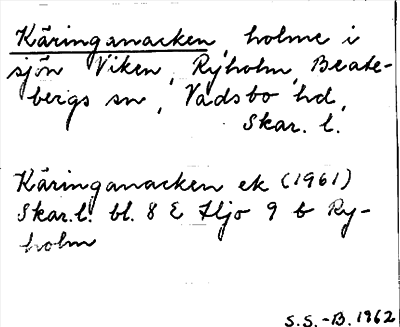 Käringanacken, holme i
sjön Viken, Ryholm, Beate-
bergs sn, Vadsbo hd,
Skar. l.
Käringanacken ek (1961)
Skar.l. bl. 8 E Hjo 9 b Ry-
holm
S.S.-B. 1962